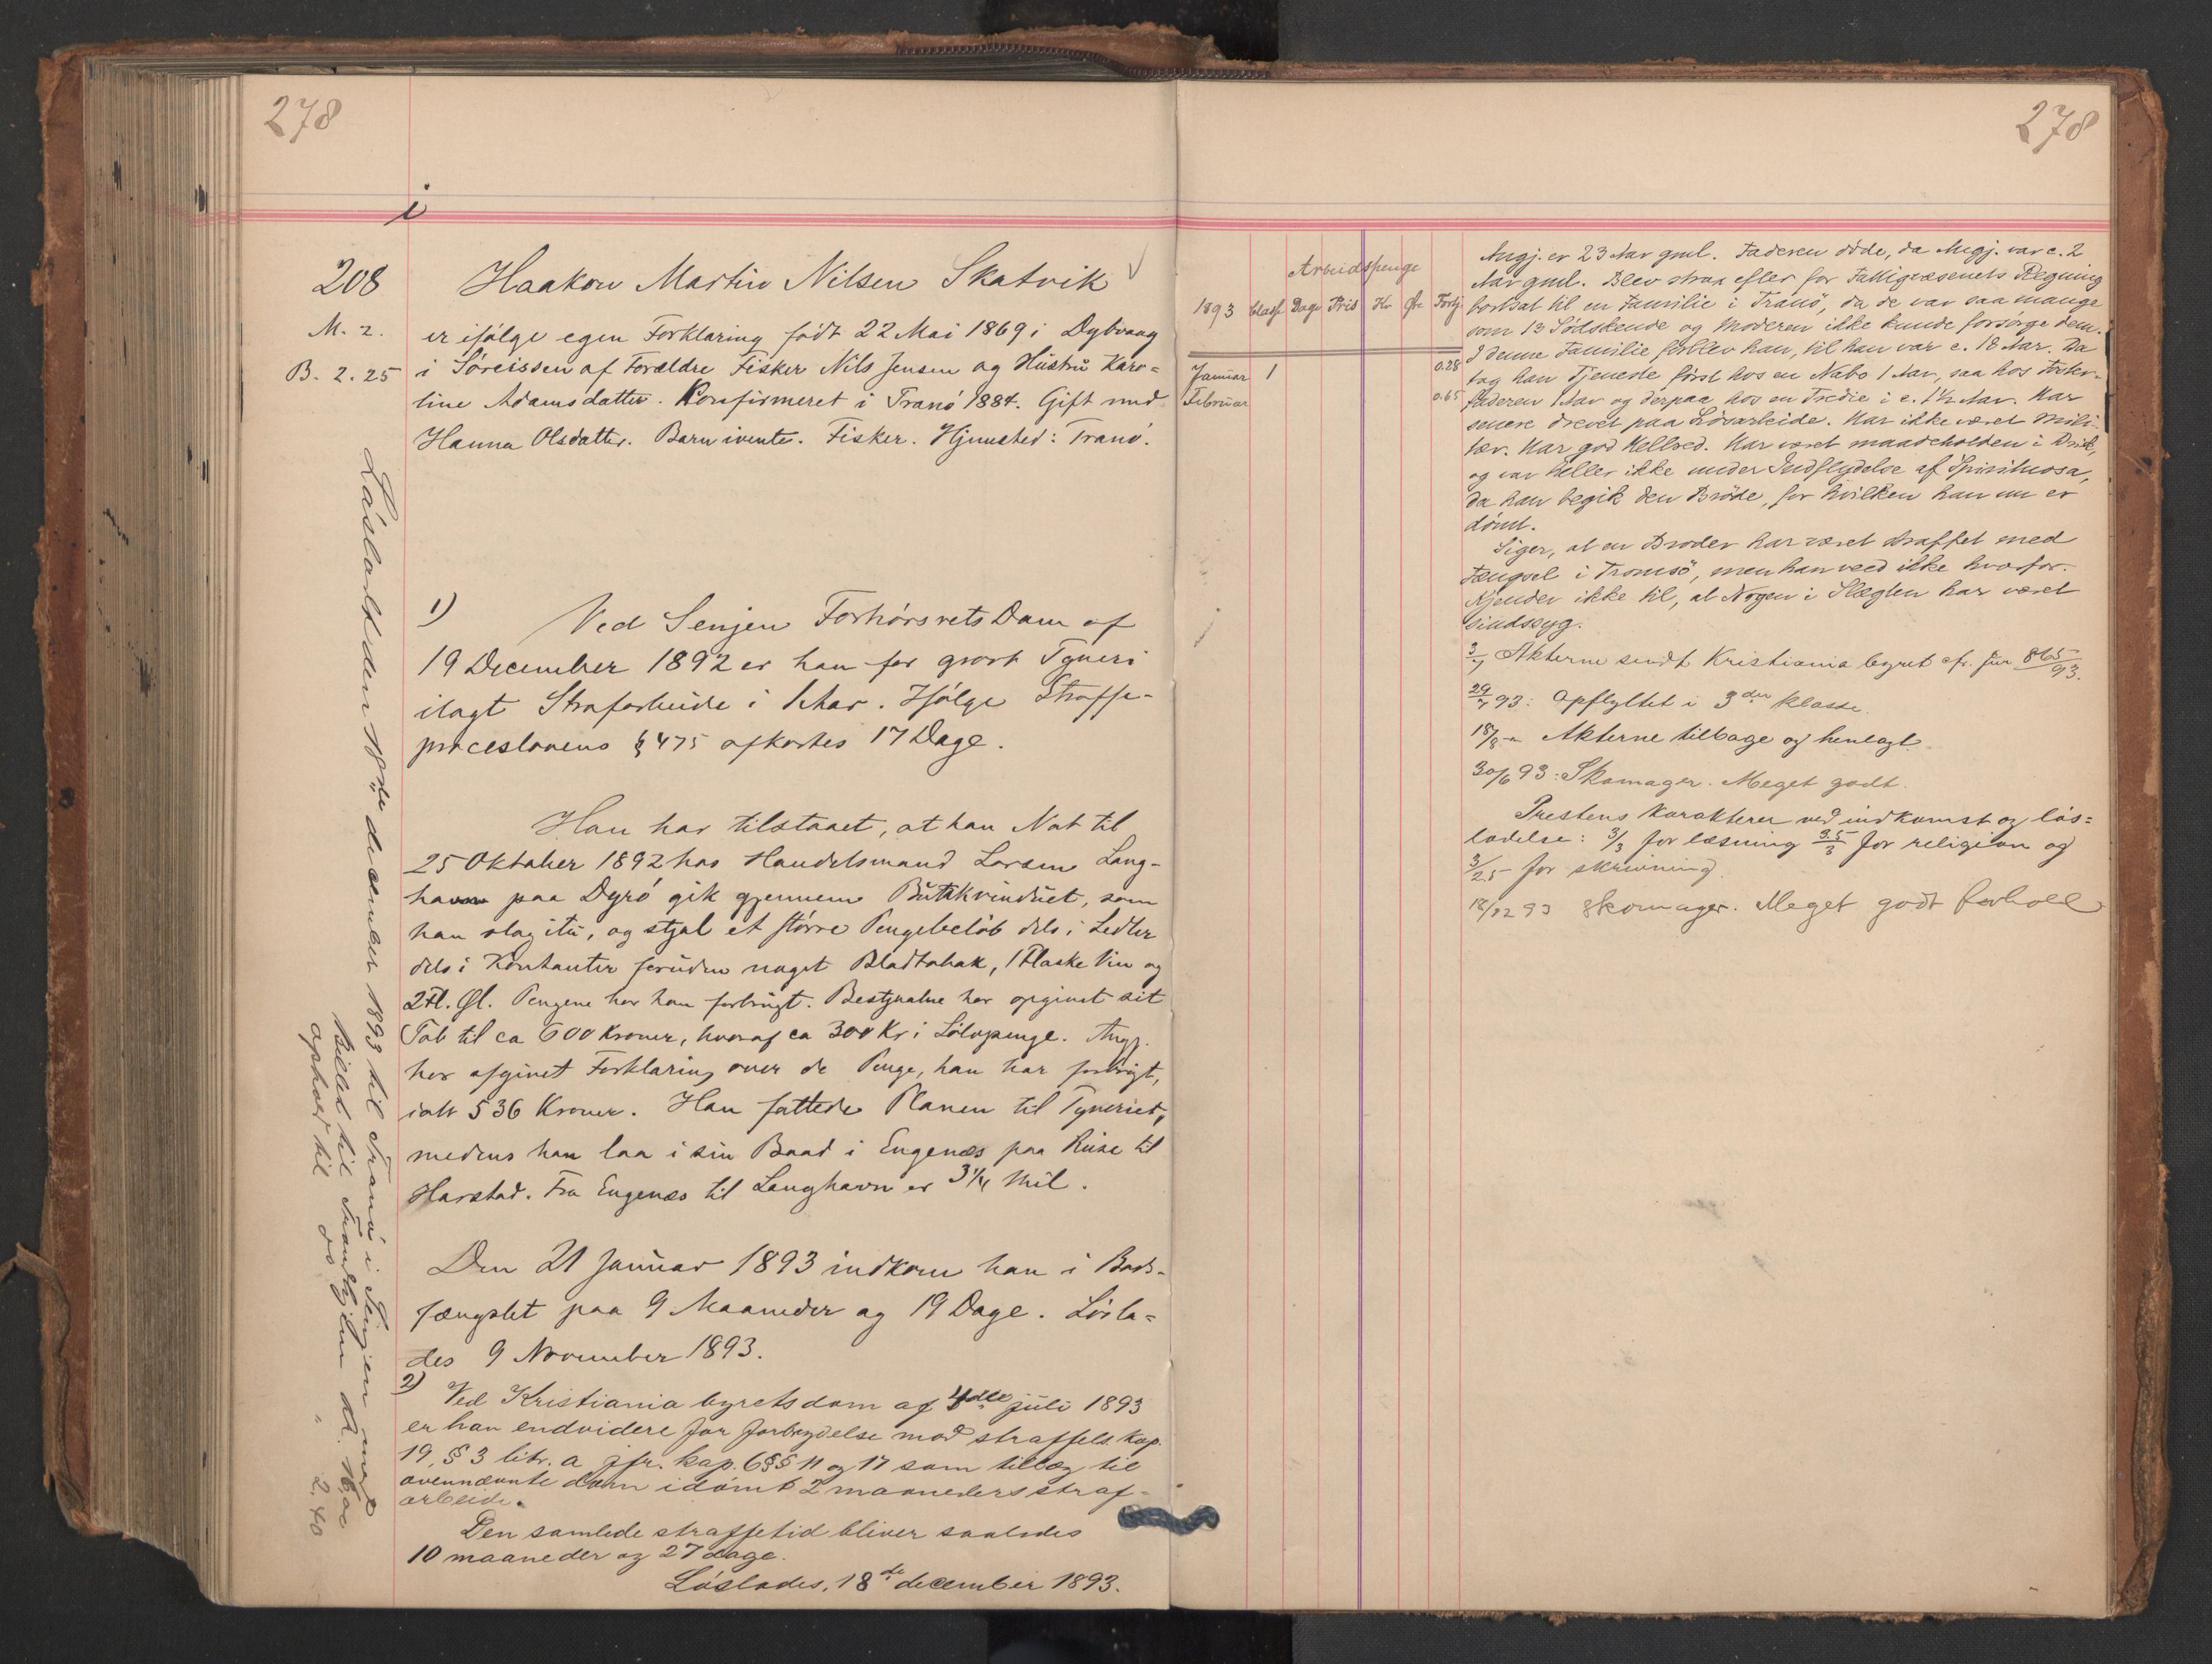 278
i
208
M. 2.
B. 2. 25
Haakon Martin Nilsen Skatvik
er ifølge egen Forklaring født 22 Mai 1869 i Dybvaag
i Søreissen af Forældre Fisker Nils Jensen og Hustru Karo-
line Adamsdatter. Konfirmeret i Tranø 1884. Gift med
Hanna Olsdatter. Barn ivente. Fisker. Hjemsted: Tranø.
1)
Ved Senjen Forhørsrets Dom af
19 December 1892 er han for grovt Tyveri
ilagt Strafarbeide i 1 Aar. Ifølge Straffe-
proceslovens § 475 afkortes 17 Dage.
Han har tilstaaet, at han Nat til
25 Oktober 1892 hos Handelsmand Larsen Lang-
havn paa Dyrø gik gjennem Butikvinduet, som
han slog itu, og stjal et større Pengebeløb dels i Sedler
dels i Kontanter foruden noget Bladtobak, 1 Flaske Vin og
2 Fl. Øl. Pengene har han forbrugt. Bestjaalne har opgivet sit
Tab til ca 600 Kroner, hvoraf ca 300 Kr i Sølvpenge. Angj.
har afgivet Forklaring over de Penge, han har forbrugt,
ialt 536 Kroner. Han fattede Planen til Tyveriet,
medens han laa i sin Baad i Engenæs paa Reise til
Harstad. Fra Engenæs til Langhavn er 3 1/4 Mil.
Den 21 Januar 1893 indkom han i Bods-
fængslet paa 9 Maaneder og 19 Dage. Løsla-
des 9 November 1893.
2)
Ved Kristiania byretsdom af 4de juli 1893
er han endvidere for forbrydelse mod straffels. kap.
19, § 3 litr. a jfr. kap. 6 §§ 11 og 17 som tillæg til
ovennævnte dom idømt 2 maaneders straf-
arbeide.
Den samlede straffetid bliver saaledes
10 maaneder og 27 dage.
Løslades, 18de december 1893.
Løsladt den 18de december 1893 til Tranø i Senjen med
Billet til Trondhjem
ophold til 2.40
278
Arbeidspenge
1893 Classe Dage Pris Kr Øre Fortj
Januar 1 0.28
Februar 0.65
Angj. er 23 Aar gml. Faderen døde, da Angj. var c. 2
Aar gml. Blev strax efter for Fattigvæsenets Regning
bortsat til en Familie i Tranø, da de var saa mange
som 13 Sødskende og Moderen ikke kunde forsørge dem.
I denne Familie forblev han, til han var c. 18 Aar. Da
tog han Tjeneste først hos en Nabo 1 Aar, saa hos Foster-
faderen 1 Aar og derpaa hos en Tredie i c. 1 1/2 Aar. Har
senere drevet paa Løsarbeide. Har ikke været Mili-
tær. Har god Helbred. Har været maadeholden i Drik,
og var heller ikke under Indflydelse af Spirituosa,
da han begik den Brøde, for hvilken han nu er
dømt.
Siger, at en Broder har været straffet med
Fængsel i Tromsø, men han veed ikke hvorfor.
Kjender ikke til, at Nogen i Slægten har været
sindssyg.
3/7 Akterne sendt Kristiania byret cfr. jur 865/93.
29/7 93: Opflyttet i 3die klasse.
18/8 " Akterne tilbage og henlagt.
30/6 93: Skomager. Meget godt.
Prestens karakterer ved indkomst og løs-
ladelse: 3/3 for læsning 3.5/3 for religion og
3/2.5 for skrivning.
18/12 93 skomager. Meget godt forhold